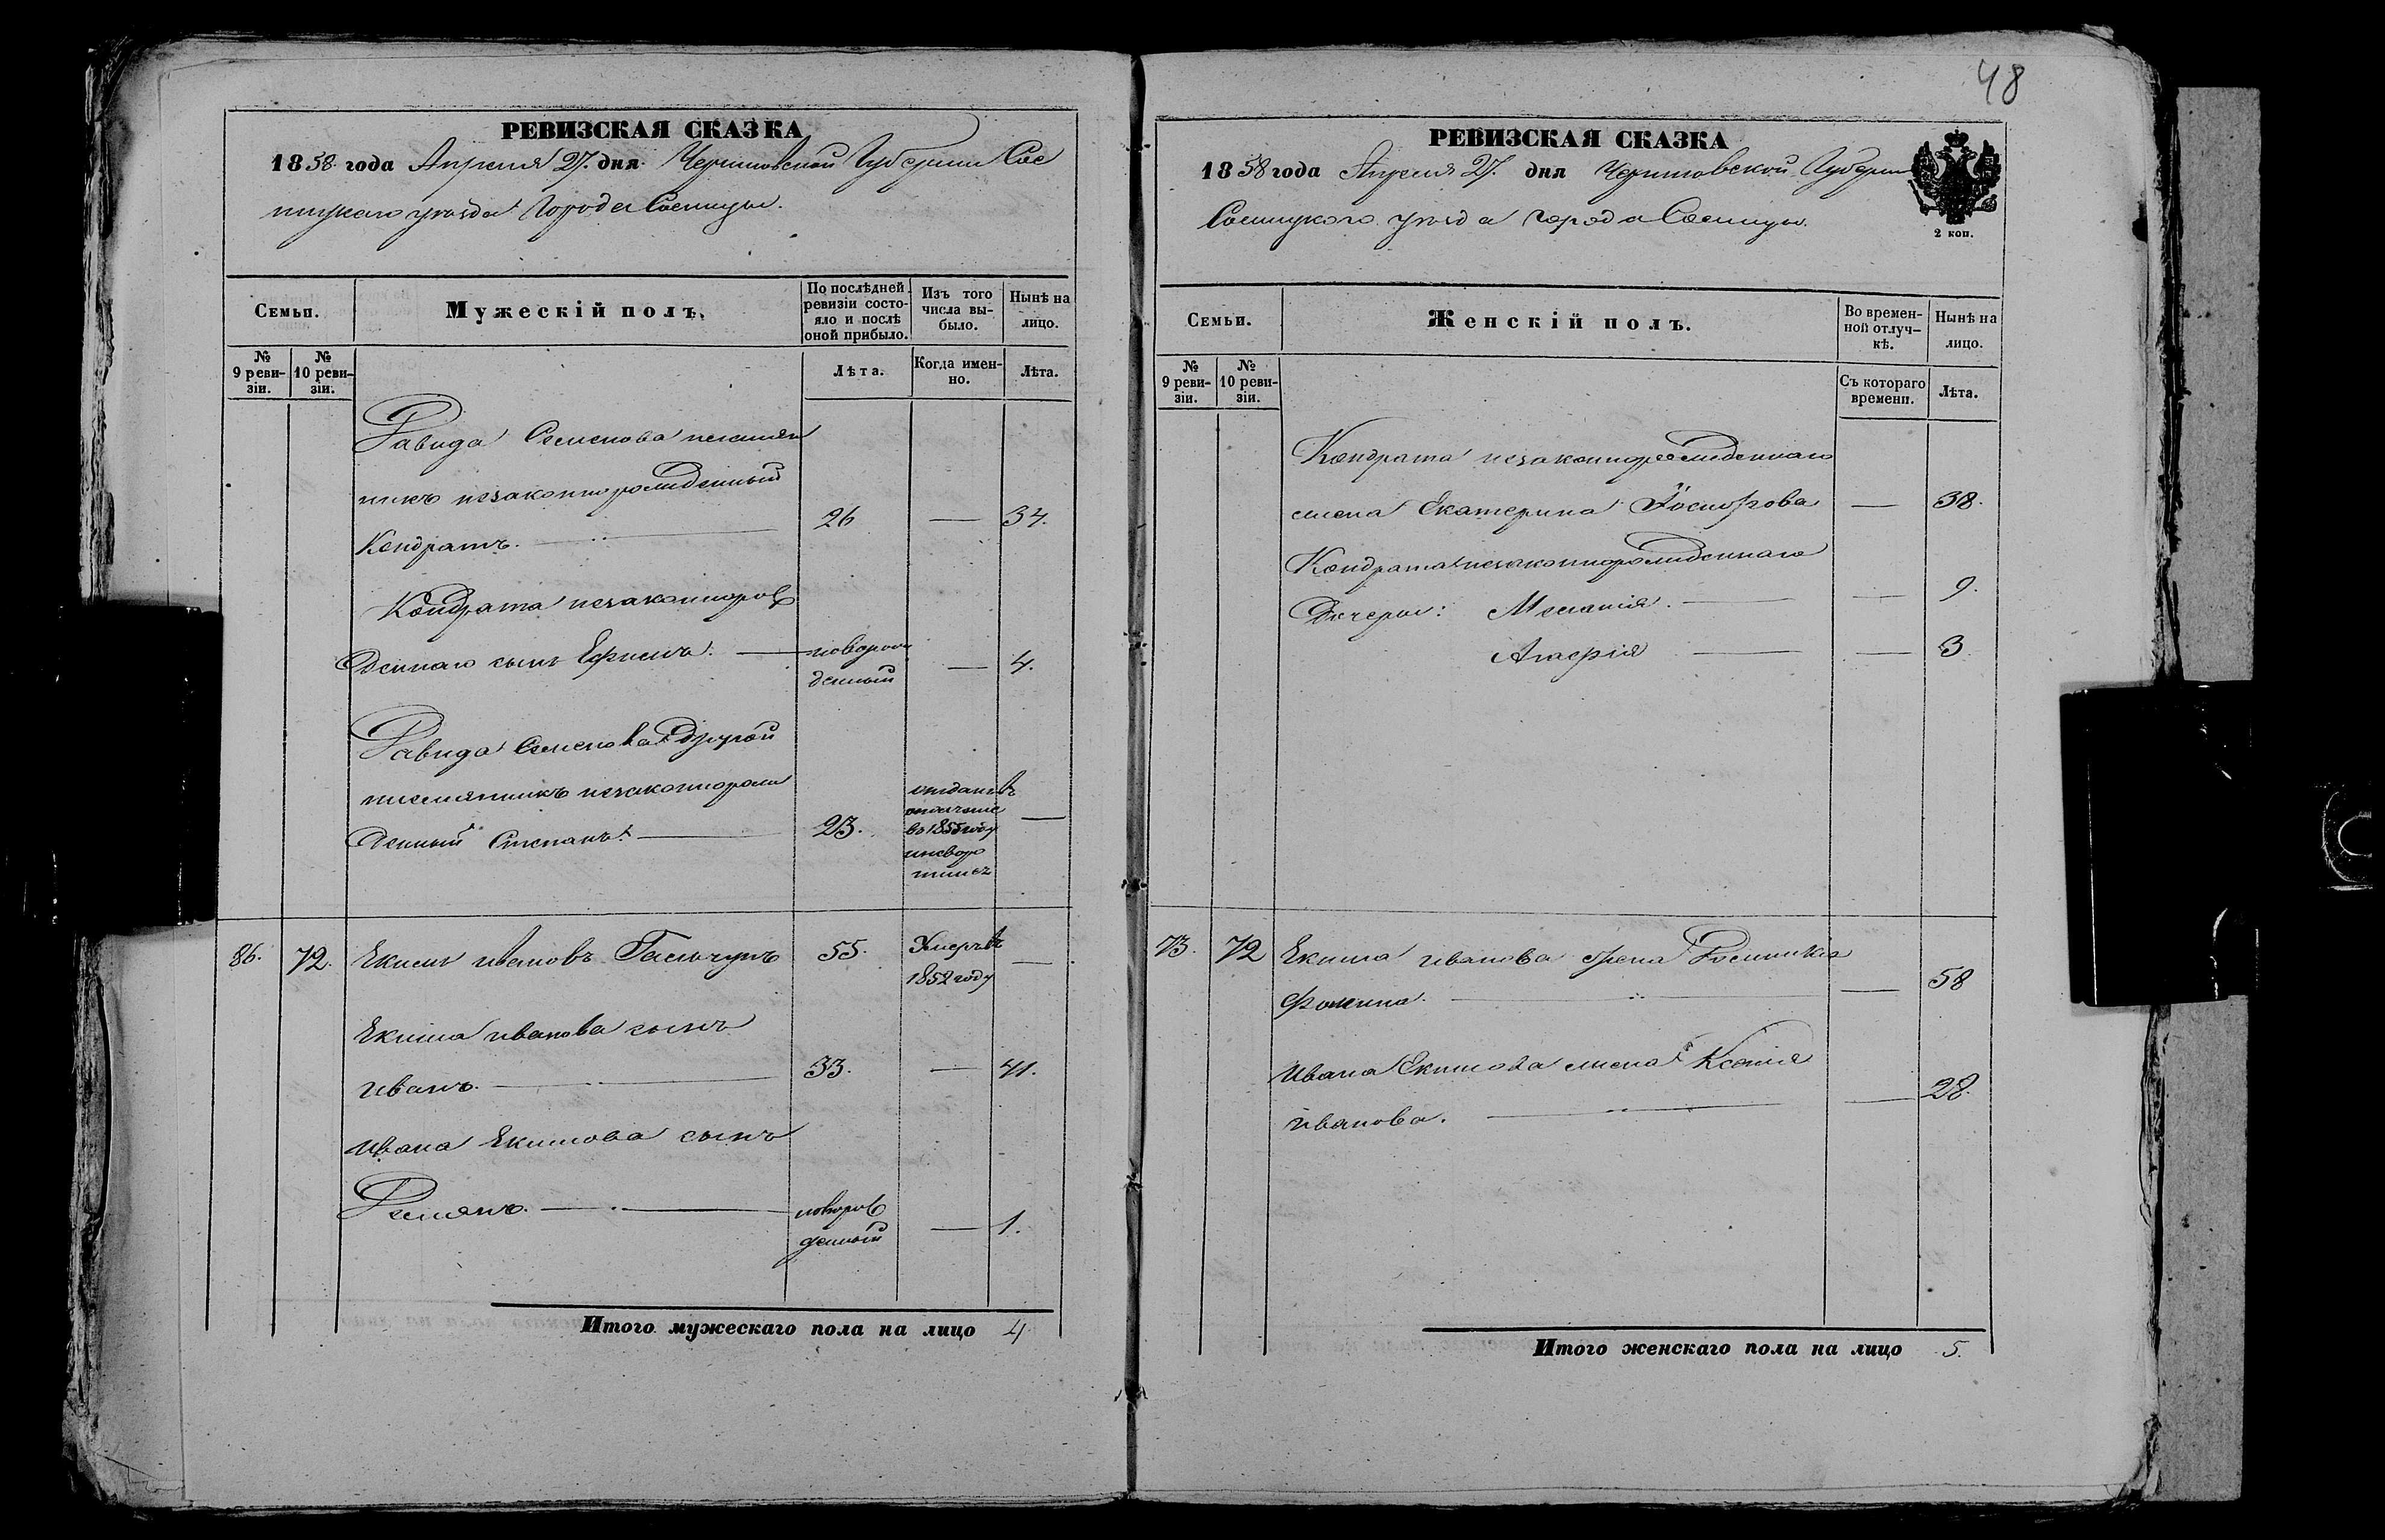 48
РЕВИЗСКАЯ СКАЗКА
1858 года Апреля 27. дня Черниговской Губернии Сос
ницкаго уѣзда Города Сосницы.
Семьи.
Мужескій полъ.
По послѣдней
ревизіи состо-
яло и послѣ
оной прибыло.
Изъ того
числа вы-
было.
Нынѣ на
лицо.
№
9 реви-
зіи.
№
10 реви-
зіи.
Лѣта.
Когда имен-
но.
Лѣта.
Давида Семенова племян
никъ незаконнорожденный
Кондратъ. 26 — 34.
Кондрата незаконнорож
деннаго сынъ Ефимъ. новорож
денный — 4.
Давида Семенова другой
племянникъ незаконнорож
денный Степанъ. 23. —
отданъ въ
ополченіе
въ 1855 году
86. 72. Екимъ Ивановъ 55. Умеръ въ
1852 году —
Екима Иванова сынъ
Иванъ. 33. — 41.
Ивана Екимова сынъ
Демянъ. новорож
денный — 1.
Итого мужескаго пола на лицо 4
РЕВИЗСКАЯ СКАЗКА
1858 года Апреля 27. дня Черниговской Губерніи
Сосницкого уѣзда города Сосницы.
2 коп.
Семьи.
Женскій полъ.
Во времен-
ной отлуч-
кѣ.
Нынѣ на
лицо.
№
9 реви-
зіи.
№
10 реви-
зіи.
Съ котораго
времени.
Лѣта.
Кондрата незаконнорожденнаго
жена Екатерина — 38.
Кондрата незаконнорожденнаго
Дочери: Меланія. — 9.
Агафія — 3
73. 72 Екима Иванова жена Домникія
Фомина. — 58
Ивана Екимова жена Ксенія
Иванова. — 28.
Итого женскаго пола на лицо 5.